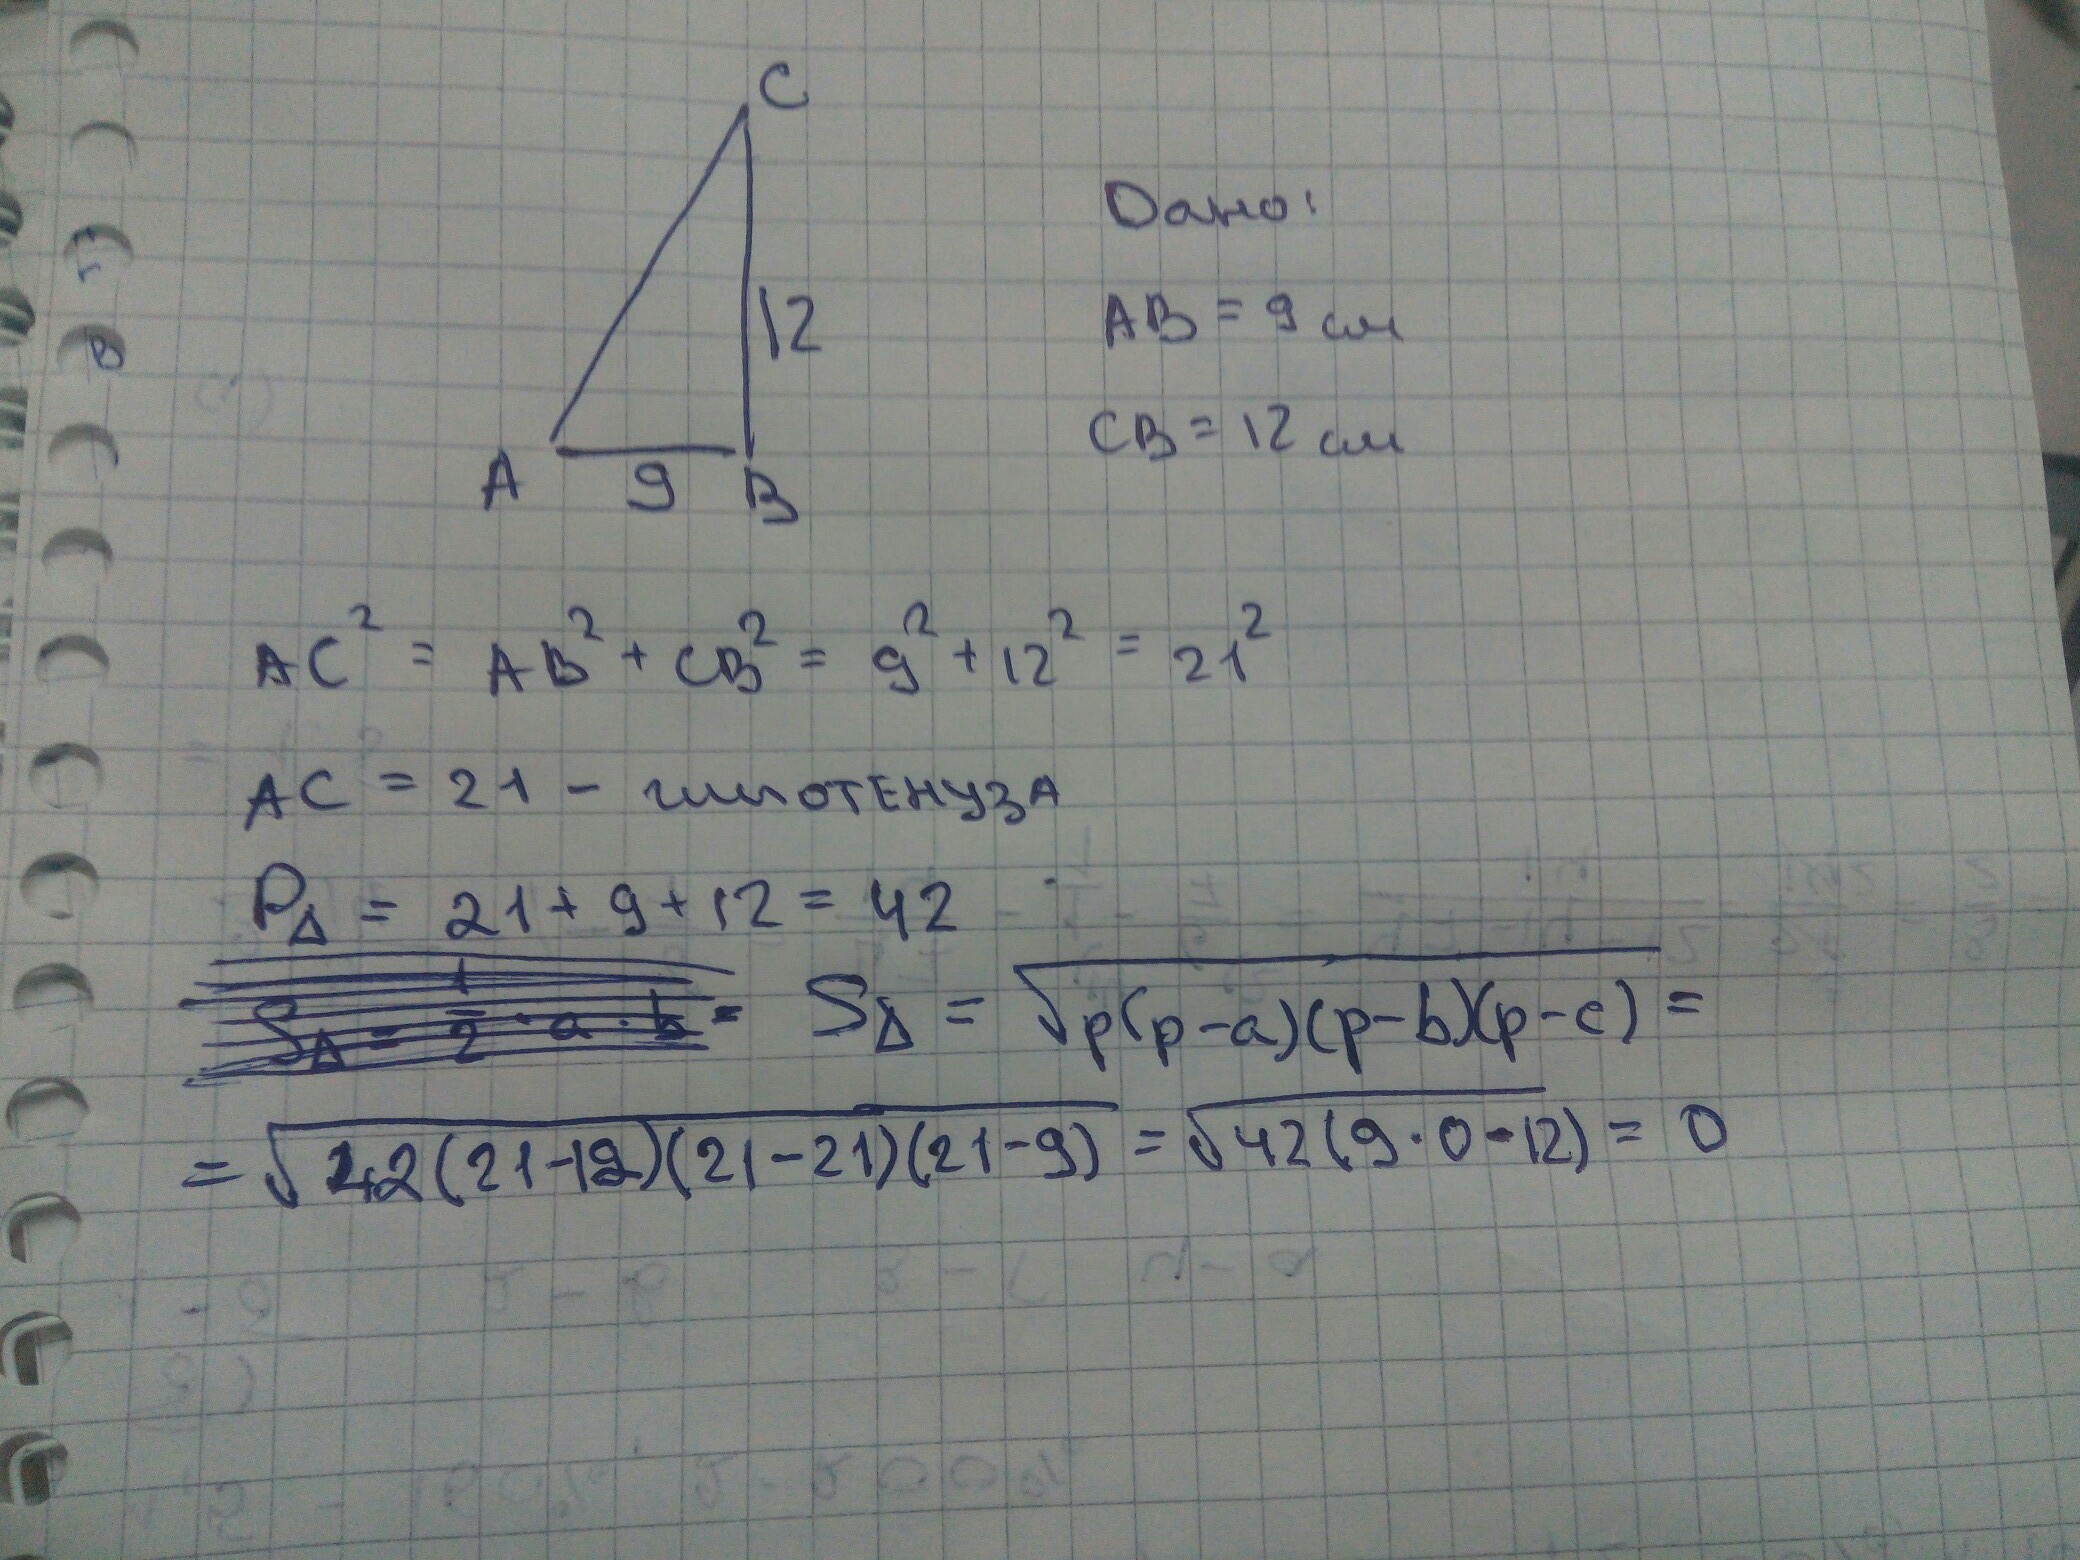 C
12
A 9 B
Дано:
AB = 9 см
CB = 12 см
AC² = AB² + CB² = 9² + 12² = 21²
AC = 21 - гипотенуза
P△ = 21 + 9 + 12 = 42
S△ = 1/2 · a · b = S△ = √p(p-a)(p-b)(p-c) =
= √42(21-12)(21-21)(21-9) = √42(9·0-12) = 0